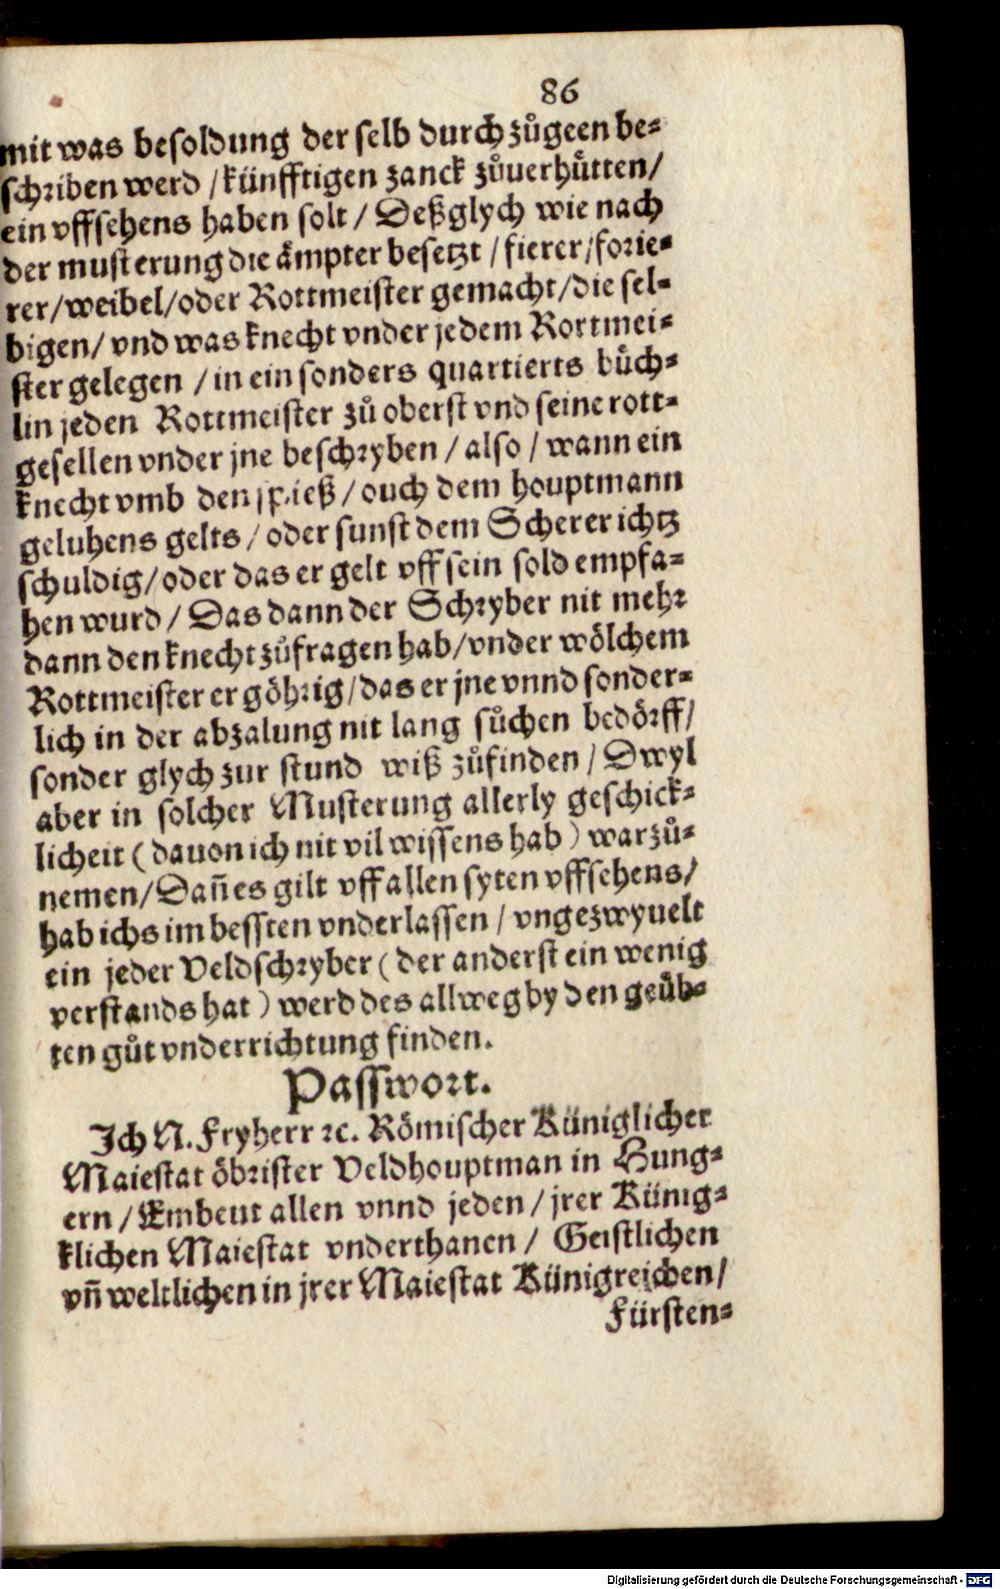 86
mit was besoldung der selb durch zůgeen be⸗
schriben werd / künfftigen zanck zůuerhütten/
ein vffsehens haben solt / Deßglych wie nach
der musterung die ämpter besetzt / fierer / forie⸗
rer/weibel/oder Rottmeister gemacht/die sel⸗
bigen/ vnd was knecht vnder jedem Rortmei⸗
ster gelegen / in ein sonders quartierts büch⸗
lin jeden Rottmeister zů oberst vnd seine rott⸗
gesellen vnder jne beschryben / also / wann ein
knecht vmb den spieß / ouch dem houptmann
geluhens gelts / oder sunst dem Scherer ichtz
schuldig/oder das er gelt vff sein sold empfa⸗
hen wurd / Das dann der Schryber nit mehr
dann den knecht zůfragen hab/vnder wölchem
Rottmeister er göhrig/das er jne vnnd sonder⸗
lich in der abzalung nit lang sůchen bedörff/
sonder glych zur stund wiß zůfinden / Dwyl
aber in solcher Musterung allerly geschick⸗
licheit ( dauon ich nit vil wissens hab ) war zů⸗
nemen/Dañ es gilt vff allen syten vffsehens/
hab ichs im bessten vnderlassen / vngezwyuelt
ein jeder Veldschryber ( der anderst ein wenig
verstands hat ) werd des allweg by den geüb⸗
ten gůt vnderrichtung finden.
Passwort.
Ich N. Fryherr ꝛc. Römischer Küniglicher
Maiestat öbrister Veldhouptman in Hung⸗
ern / Embeut allen vnnd jeden / jrer Künig⸗
klichen Maiestat vnderthanen / Geistlichen
vñ weltlichen in jrer Maiestat Künigreichen/
Fürsten⸗
Digitalisierung gefördert durch die Deutsche Forschungsgemeinschaft - DFG